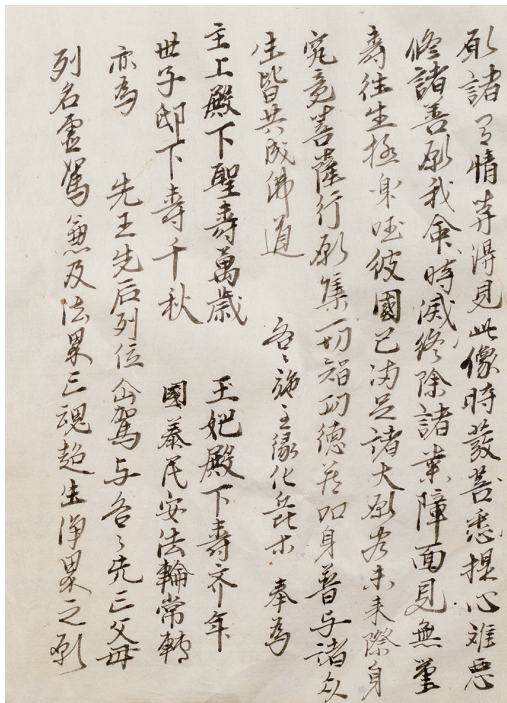 願諸有情等得見此像時發菩悉提心離惡
修諸善願我命時滅終除諸業障面見無量
壽往生極樂彼國已滿足諸大願未來際身
究竟菩薩行願集一切智功德如身普与諸众
生皆共成佛道　各〻施主緣化　奉為
主上殿下聖壽萬歲　王妃殿下壽齐年
世子邸下壽千秋　國泰民安法輪常轉
亦為　先王先后列位仙駕与各〻先亡父母
列名靈駕兼及法界亡魂超生淨界之願